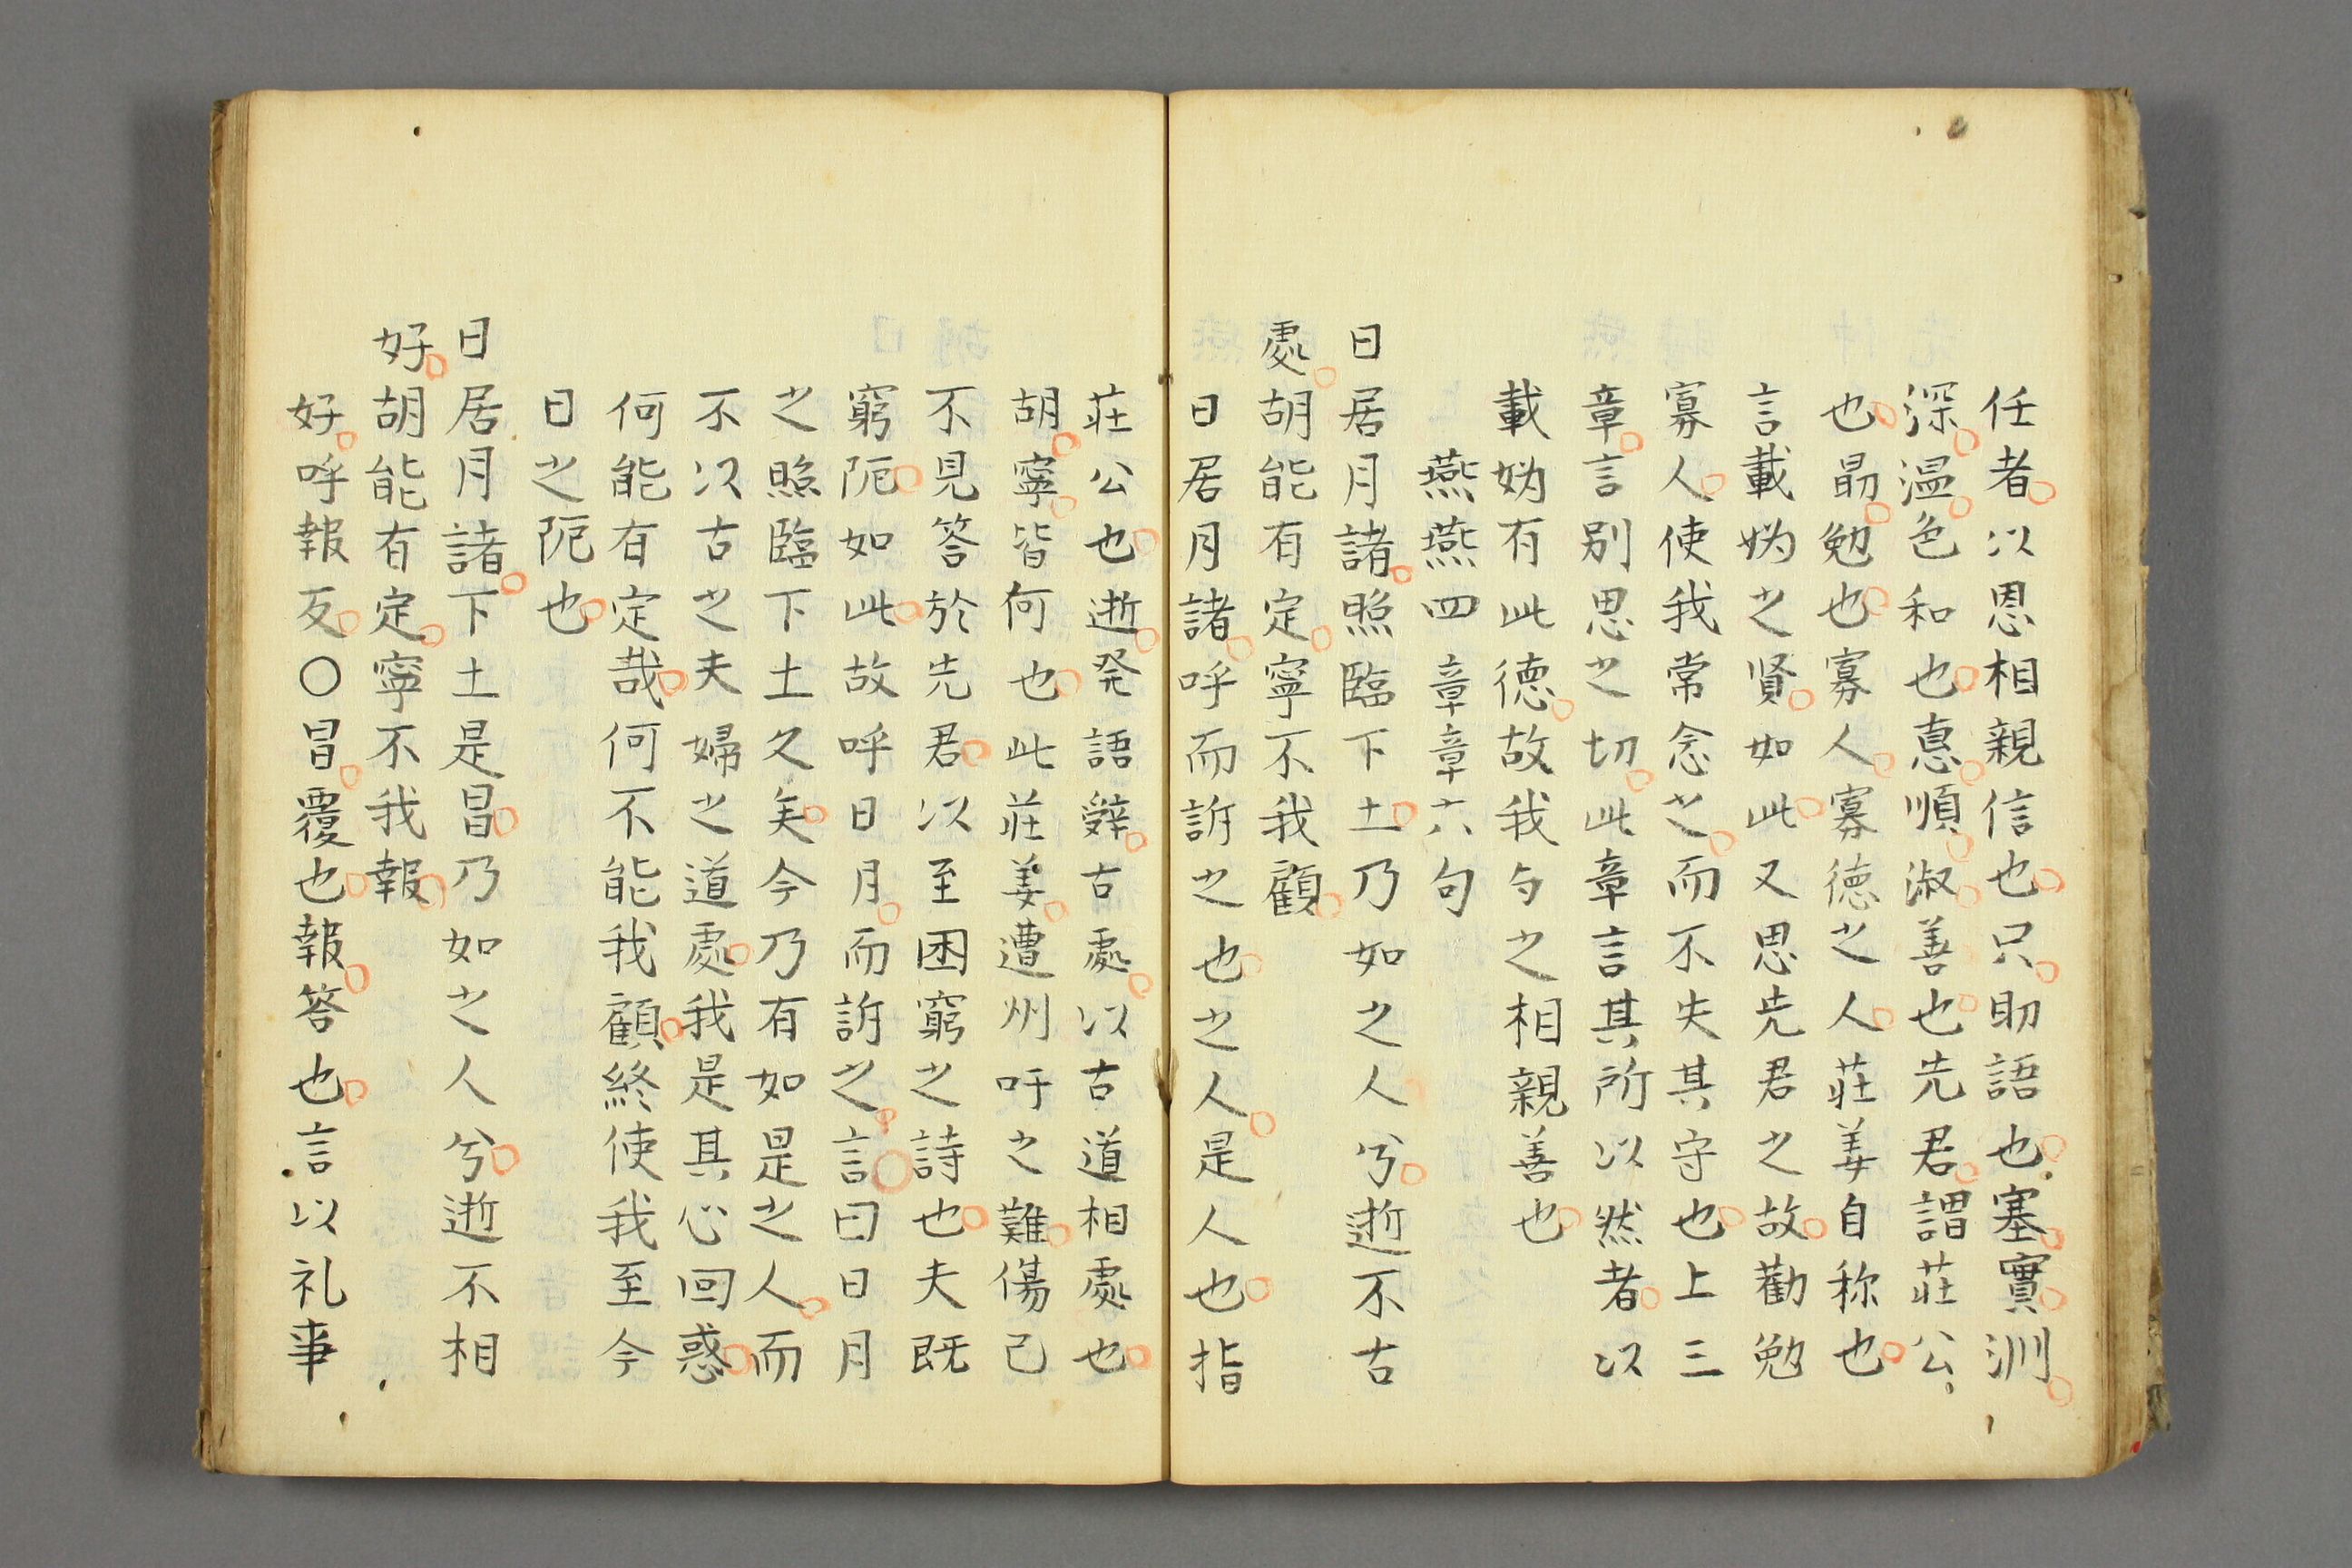 任者以恩相親信也只助語也塞實淵
深温色和也恵順淑善也先君謂荘公
也勗勉也也寡人寡徳之人荘姜自称也
言載媯之賢如此又思先君之故勸勉
寡人使我常念之而不失其守也上三
章言別思之切此章言其所以然者以
載媯有此徳故我与之相親善也
燕燕四章章六句
日居月諸照臨下土乃如之人兮逝不古
處胡能有定寧不我顧
日居月諸呼而訴之也之人是人也指
荘公也逝発語辞古處以古道相處也
胡寧皆何也此荘姜遭州吁之難傷己
不見答於先君以至困窮之詩也夫既
窮阨如此故呼日月而訴之言曰日月
之照臨下土久矣今乃有如是之人而
不以古之夫婦之道處我是其心回惑
何能有定哉何不能我顧終使我至今
日之阨也
日居月諸下土是冒乃如之人兮逝不相
好胡能有定寧不我報
好呼報反〇冒覆也報答也言以礼事